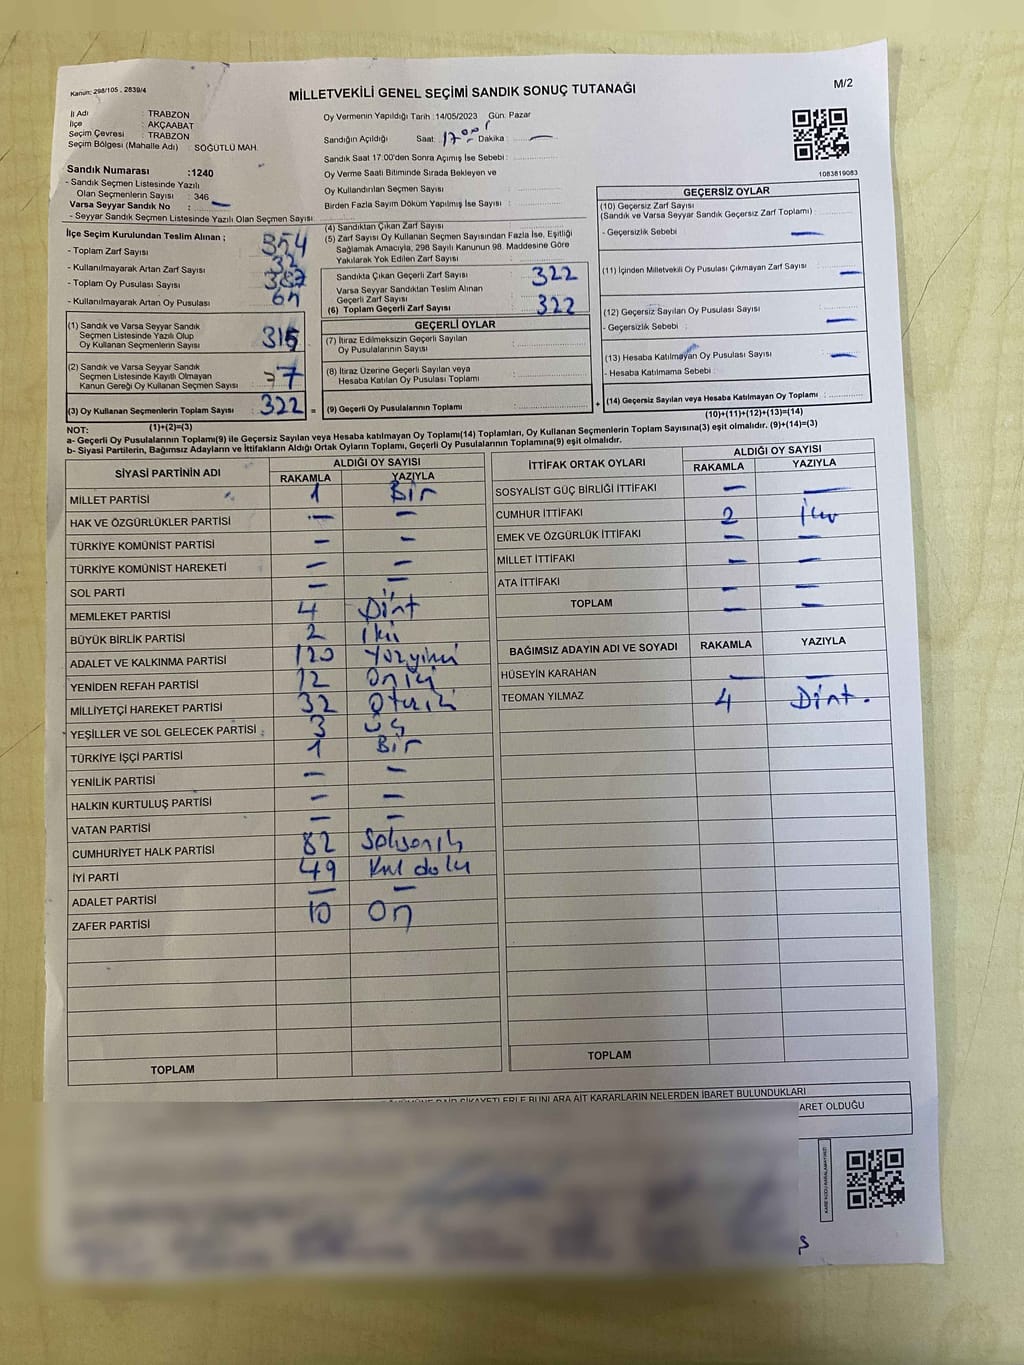 Kanun: 298/105 , 2839/4
MİLLETVEKİLİ GENEL SEÇİMİ SANDIK SONUÇ TUTANAĞI
M/2
İl Adı : TRABZON
İlçe : AKÇAABAT
Seçim Çevresi : TRABZON
Seçim Bölgesi (Mahalle Adı) : SOĞUTLÜ MAH.
Sandık Numarası :1240
- Sandık Seçmen Listesinde Yazılı
Olan Seçmenlerin Sayısı : 346
Varsa Seyyar Sandık No : —
- Seyyar Sandık Seçmen Listesinde Yazılı Olan Seçmen Sayısı
Oy Vermenin Yapıldığı Tarih :14/05/2023 Gün: Pazar
Sandığın Açıldığı Saat: 17 Dakika : —
Sandık Saat 17:00'den Sonra Açımış İse Sebebi :
Oy Verme Saati Bitiminde Sırada Bekleyen ve
Oy Kullandırılan Seçmen Sayısı
Birden Fazla Sayım Döküm Yapılmış İse Sayısı :
1083819083
İlçe Seçim Kurulundan Teslim Alınan ;
- Toplam Zarf Sayısı 354
- Kullanılmayarak Artan Zarf Sayısı 32
- Toplam Oy Pusulası Sayısı
- Kullanılmayarak Artan Oy Pusulası
(1) Sandık ve Varsa Seyyar Sandık
Seçmen Listesinde Yazılı Olup
Oy Kullanan Seçmenlerin Sayısı : 315
(2) Sandık ve Varsa Seyyar Sandık
Seçmen Listesinde Kayıtlı Olmayan
Kanun Gereği Oy Kullanan Seçmen Sayısı : 7
(3) Oy Kullanan Seçmenlerin Toplam Sayısı : 322 =
(1)+(2)=(3)
(4) Sandıktan Çıkan Zarf Sayısı
(5) Zarf Sayısı Oy Kullanan Seçmen Sayısından Fazla İse, Eşitliği
Sağlamak Amacıyla, 298 Sayılı Kanunun 98. Maddesine Göre
Yakılarak Yok Edilen Zarf Sayısı :
Sandıkta Çıkan Geçerli Zarf Sayısı 322
Varsa Seyyar Sandıktan Teslim Alınan
Geçerli Zarf Sayısı
(6) Toplam Geçerli Zarf Sayısı 322
GEÇERLİ OYLAR
(7) İtiraz Edilmeksizin Geçerli Sayılan
Oy Pusulalarının Sayısı
(8) İtiraz Üzerine Geçerli Sayılan veya
Hesaba Katılan Oy Pusulası Toplamı
(9) Geçerli Oy Pusulalarının Toplamı +
GEÇERSİZ OYLAR
(10) Geçersiz Zarf Sayısı
(Sandık ve Varsa Seyyar Sandık Geçersiz Zarf Toplamı) :
- Geçersizlik Sebebi : —
(11) İçinden Milletvekili Oy Pusulası Çıkmayan Zarf Sayısı : —
(12) Geçersiz Sayılan Oy Pusulası Sayısı : —
- Geçersizlik Sebebi :
(13) Hesaba Katılmayan Oy Pusulası Sayısı : —
- Hesaba Katılmama Sebebi :
(14) Geçersiz Sayılan veya Hesaba Katılmayan Oy Toplamı :
(10)+(11)+(12)+(13)=(14)
NOT:
a- Geçerli Oy Pusulalarının Toplamı(9) ile Geçersiz Sayılan veya Hesaba katılmayan Oy Toplamı(14) Toplamları, Oy Kullanan Seçmenlerin Toplam Sayısına(3) eşit olmalıdır. (9)+(14)=(3)
b- Siyasi Partilerin, Bağımsız Adayların ve İttifakların Aldığı Ortak Oyların Toplamı, Geçerli Oy Pusulalarının Toplamına(9) eşit olmalıdır.
SİYASİ PARTİNİN ADI ALDIĞI OY SAYISI
RAKAMLA YAZIYLA
MİLLET PARTİSİ 1 Bir
HAK VE ÖZGÜRLÜKLER PARTİSİ — —
TÜRKİYE KOMÜNİST PARTİSİ — —
TÜRKİYE KOMÜNİST HAREKETİ — —
SOL PARTİ — —
MEMLEKET PARTİSİ 4 Dört
BÜYÜK BİRLİK PARTİSİ 2 iki
ADALET VE KALKINMA PARTİSİ 120 Yüzyirmi
YENİDEN REFAH PARTİSİ 12 Oniki
MİLLİYETÇİ HAREKET PARTİSİ 32 Otuziki
YEŞİLLER VE SOL GELECEK PARTİSİ 3 üç
TÜRKİYE İŞÇİ PARTİSİ 1 Bir
YENİLİK PARTİSİ — —
HALKIN KURTULUŞ PARTİSİ — —
VATAN PARTİSİ — —
CUMHURİYET HALK PARTİSİ 82 Seksenik
İYİ PARTİ 49 Kırkdoku
ADALET PARTİSİ — —
ZAFER PARTİSİ 10 On
TOPLAM
İTTİFAK ORTAK OYLARI ALDIĞI OY SAYISI
RAKAMLA YAZIYLA
SOSYALİST GÜÇ BİRLİĞİ İTTİFAKI — —
CUMHUR İTTİFAKI 2 iki
EMEK VE ÖZGÜRLÜK İTTİFAKI — —
MİLLET İTTİFAKI — —
ATA İTTİFAKI — —
TOPLAM — —
BAĞIMSIZ ADAYIN ADI VE SOYADI RAKAMLA YAZIYLA
HÜSEYİN KARAHAN — —
TEOMAN YILMAZ 4 Dört.
TOPLAM
ŞİKAYETLERLE BUNLARA AİT KARARLARIN NELERDEN İBARET BULUNDUKLARI
ARET OLDUĞU